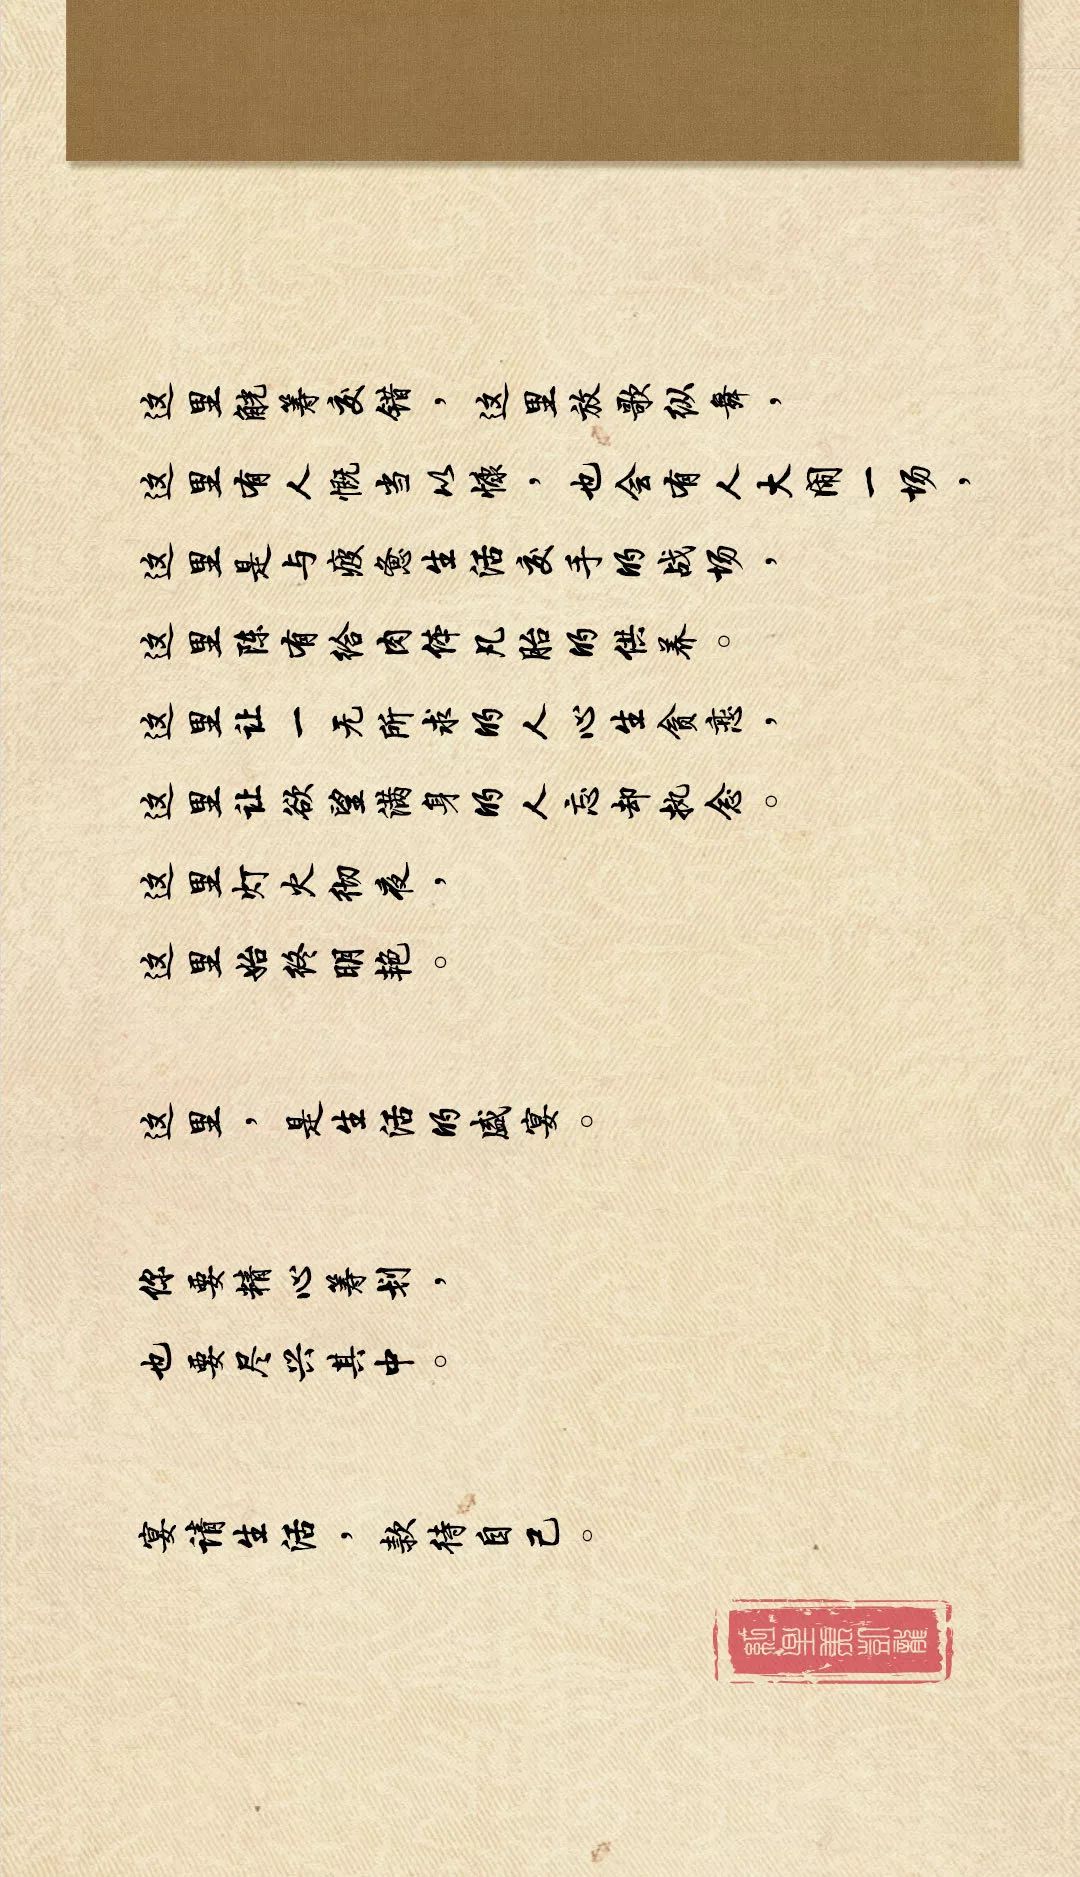 这里觥筹交错，这里放歌纵舞，
这里有人慨当以慷，也会有人大闹一场，
这里是与疲惫生活交手的战场，
这里陈有给肉体凡胎的供养。
这里让一无所求的人心生贪恋，
这里让欲望满身的人忘却执念。
这里灯火彻夜，
这里始终明艳。
这里，是生活的盛宴。
你要精心筹划，
也要尽兴其中。
宴请生活，款待自己。